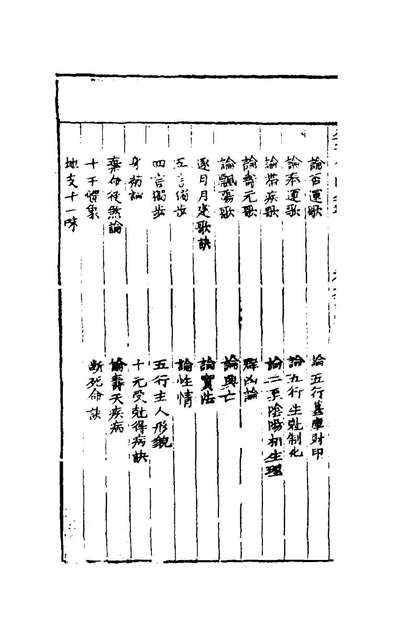 論運歌 論五行墓庫財印
論泰運歌 論五行生尅制化
論帶疾歌 論二至陰陽相生理
論壽元歌 群凶論
論飄蕩歌 論興亡
逐日月建歌訣 論寶法
五言獨步 論性情
四言獨步 五行主人形貌
身弱論 十元受尅得病訣
棄命從煞論 論壽夭疾病
十干體象 斷死命訣
地支十二咏